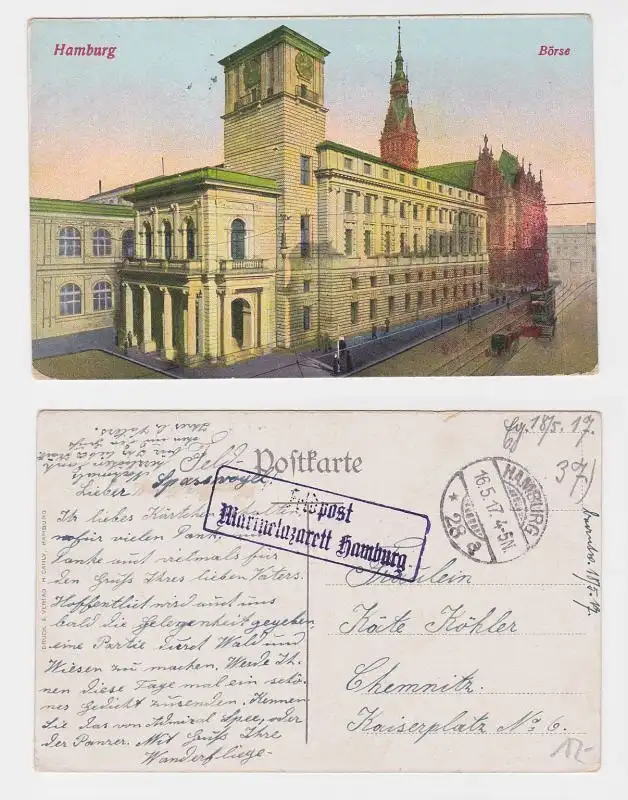 Hamburg
Börse
Feldpostkarte
Lieber Spassvogel!
Feldpost
Marinelazarett Hamburg.
HAMBURG
16.5.17. 4-5N
* 28 a
Eg. 18/5. 17.
37/
Ihr liebes Kärtchen erhalten,
wofür vielen Dank.
Danke auch vielmals für
den Gruß Ihres lieben Vaters.
Hoffentlich wird auch uns
bald die Gelegenheit gegeben,
eine Partie durch Wald und
Wiesen zu machen. Werde Ih-
nen diese Tage mal ein schö-
nes Gedicht zusenden. Kennen
Sie das von Admiral Spee, oder
der Panzer. Mit Gruß Ihre
Wanderfliege.
Fräulein
Käte Köhler
Chemnitz.
Kaiserplatz No 6.
DRUCK & VERLAG H. CARLY, HAMBURG
12.-